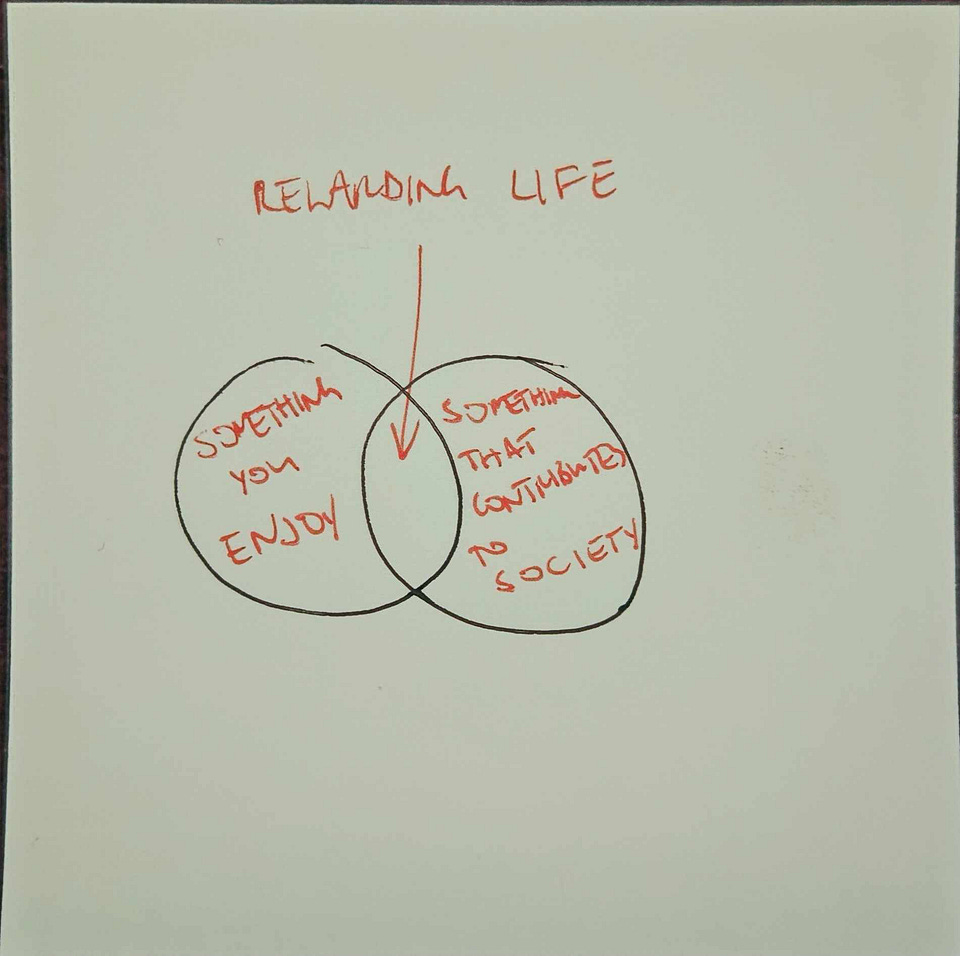 REWARDING LIFE
SOMETHING
YOU
ENJOY
SOMETHING
THAT
CONTRIBUTES
TO
SOCIETY